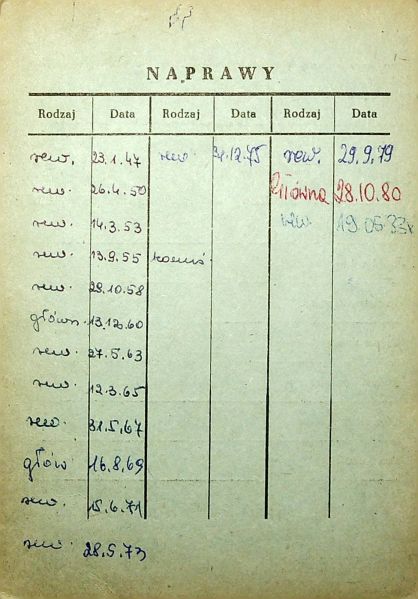 NAPRAWY
Rodzaj Data Rodzaj Data Rodzaj Data
rew. 23.1.47 rew. 31.12.75 rew. 29.9.79
rew. 26.4.50 Główna 28.10.80
rew. 14.3.53 rew
rew. 13.9.55
rew. 28.10.58
główn. 13.12.60
rew. 27.5.63
rew. 12.3.65
rew. 31.5.67
głów 16.8.69
rew. 15.6.71
rew. 28.5.73